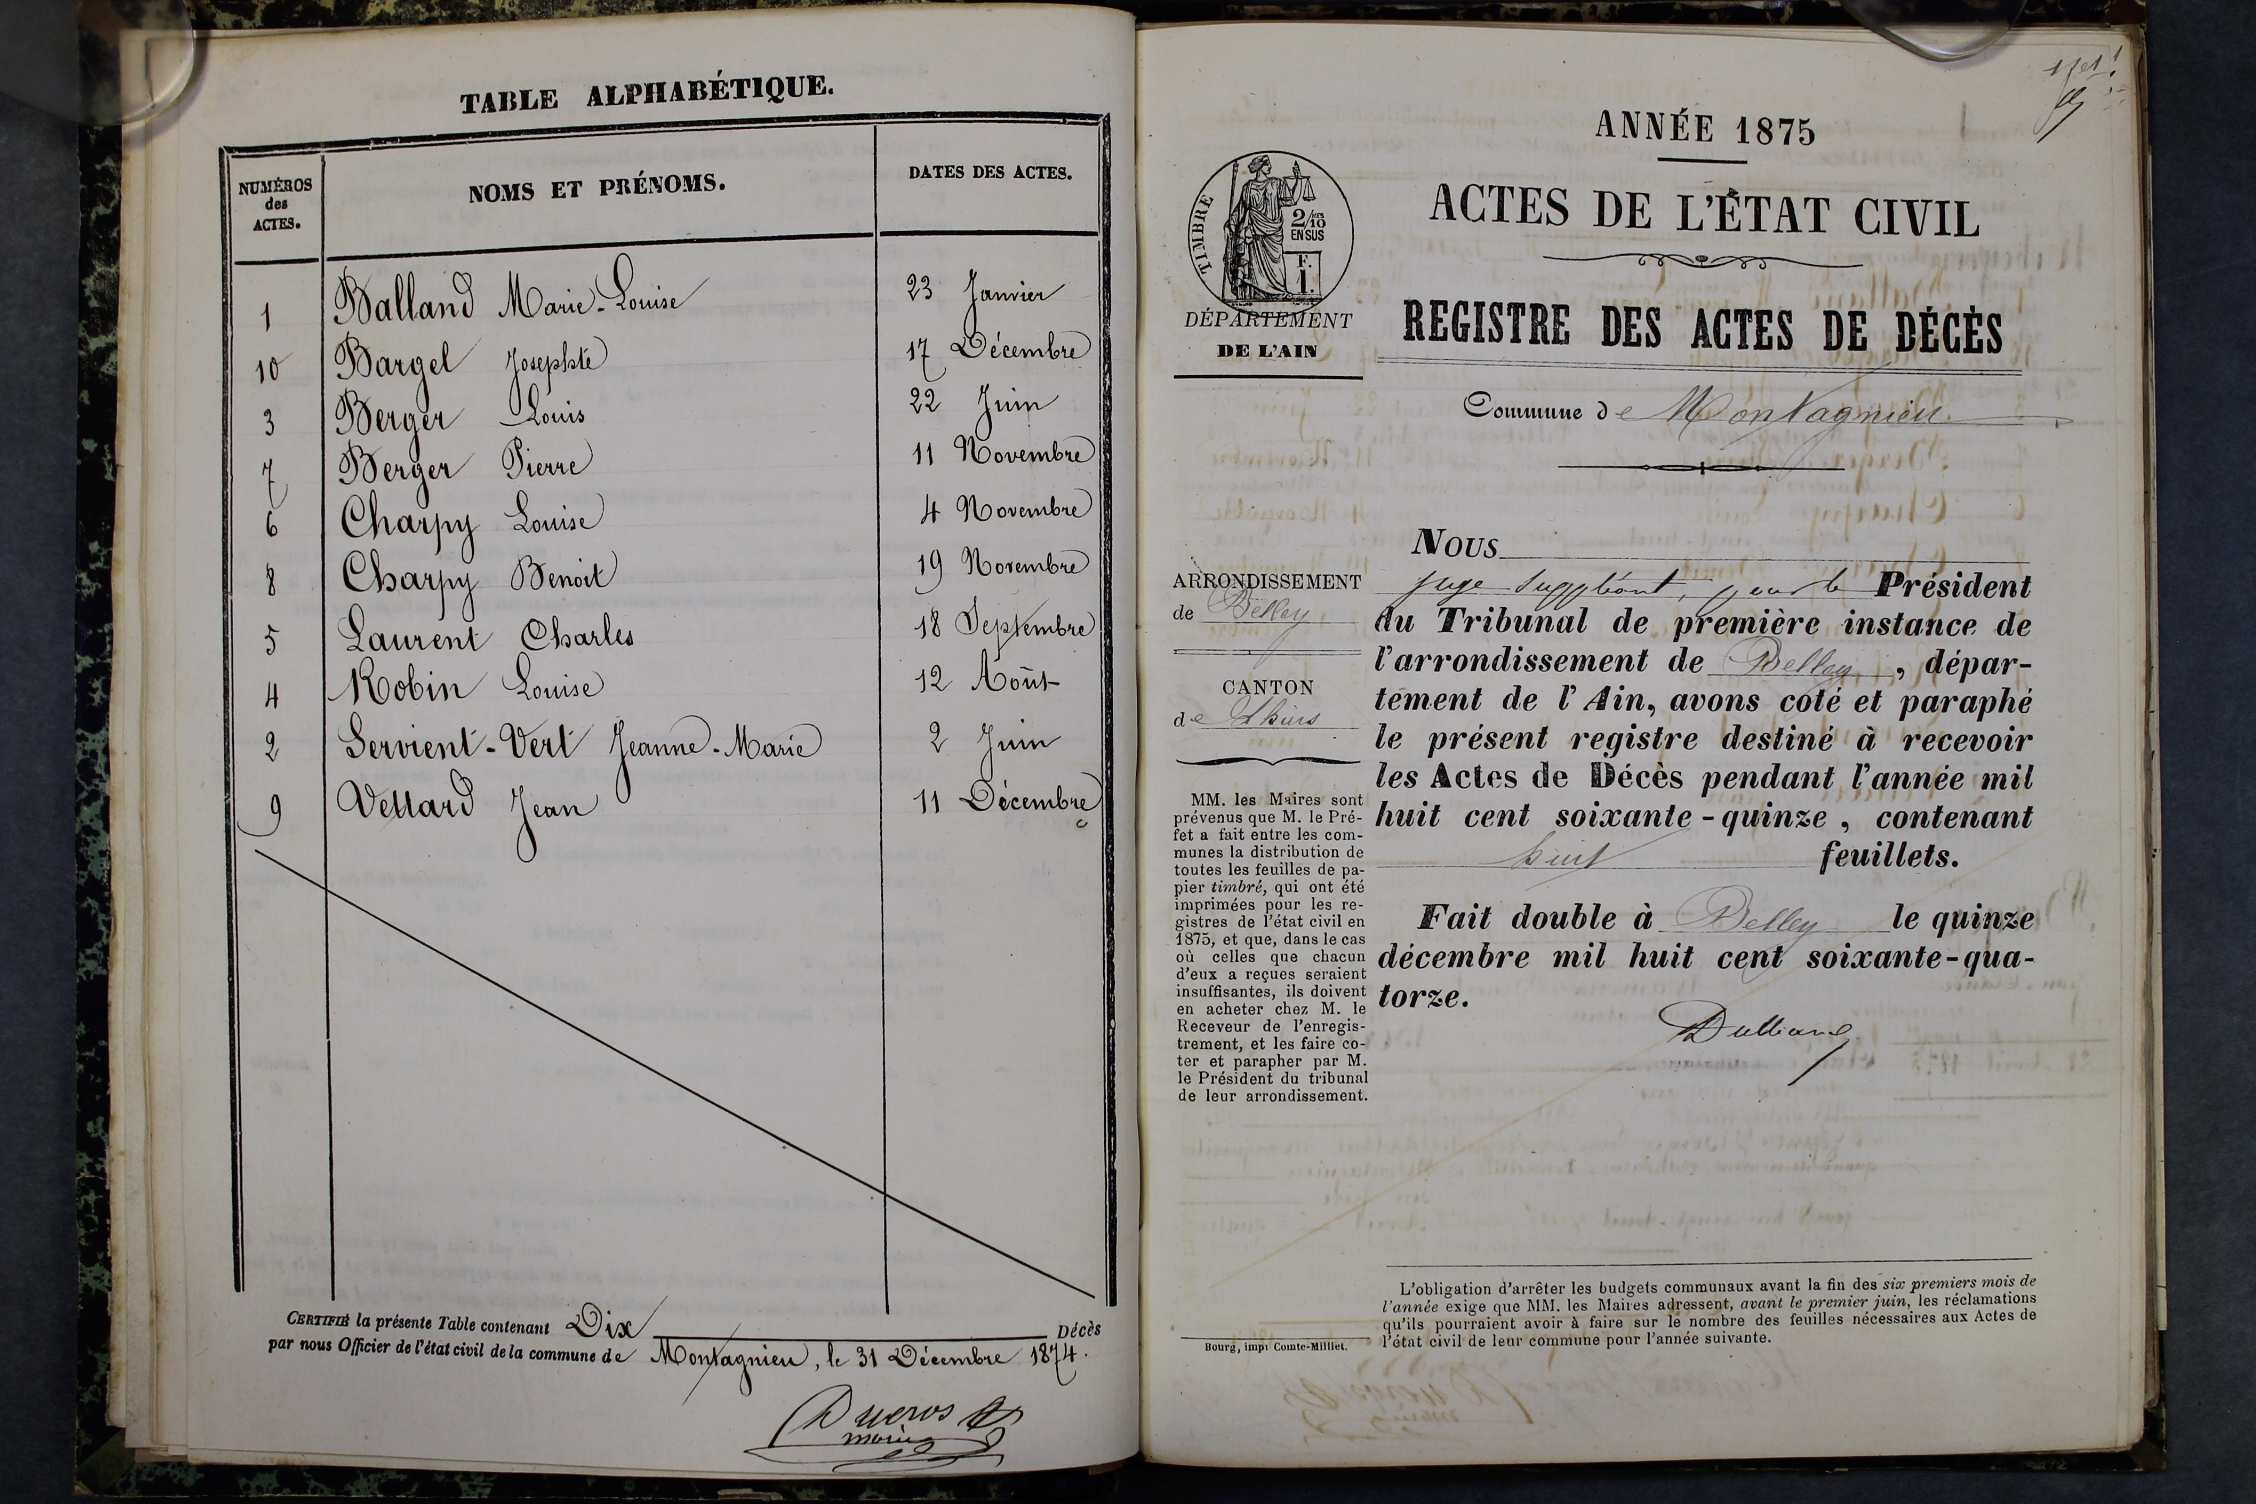 TABLE ALPHABÉTIQUE.
NUMÉROS des ACTES. NOMS ET PRÉNOMS. DATES DES ACTES.
1 Balland Marie-Louise 23 Janvier
10 Bargel Josephte 17 Décembre
3 Berger Louis 22 Juin
7 Berger Pierre 11 Novembre
6 Charpy Louise 4 Novembre
8 Charpy Benoit 19 Novembre
5 Laurent Charles 18 Septembre
4 Robin Louise 12 Août
2 Servient-Vert Jeanne-Marie 2 Juin
9 Vettard Jean 11 Décembre
CERTIFIÉ la présente Table contenant Dix Décès
par nous Officier de l'état civil de la commune de Montagnieu, le 31 Décembre 1874.
Ducros
maire
ANNÉE 1875
ACTES DE L'ÉTAT CIVIL
REGISTRE DES ACTES DE DÉCÈS
Commune de Montagnieu
TIMBRE
2/10
EN SUS
F.
1.
DÉPARTEMENT
DE L'AIN
ARRONDISSEMENT
de Belley
CANTON
de Lhuis
MM. les Maires sont
prévenus que M. le Pré-
fet a fait entre les com-
munes la distribution de
toutes les feuilles de pa-
pier timbré, qui ont été
imprimées pour les re-
gistres de l'état civil en
1875, et que, dans le cas
où celles que chacun
d'eux a reçues seraient
insuffisantes, ils doivent
en acheter chez M. le
Receveur de l'enregis-
trement, et les faire co-
ter et parapher par M.
le Président du tribunal
de leur arrondissement.
Bourg, impr Comte-Milliet.
NOUS
juge suppléant, pour le Président
du Tribunal de première instance de
l'arrondissement de Belley, dépar-
tement de l'Ain, avons coté et paraphé
le présent registre destiné à recevoir
les Actes de Décès pendant l'année mil
huit cent soixante-quinze, contenant
huit feuillets.
Fait double à Belley le quinze
décembre mil huit cent soixante-qua-
torze.
L'obligation d'arrêter les budgets communaux avant la fin des six premiers mois de
l'année exige que MM. les Maires adressent, avant le premier juin, les réclamations
qu'ils pourraient avoir à faire sur le nombre des feuilles nécessaires aux Actes de
l'état civil de leur commune pour l'année suivante.